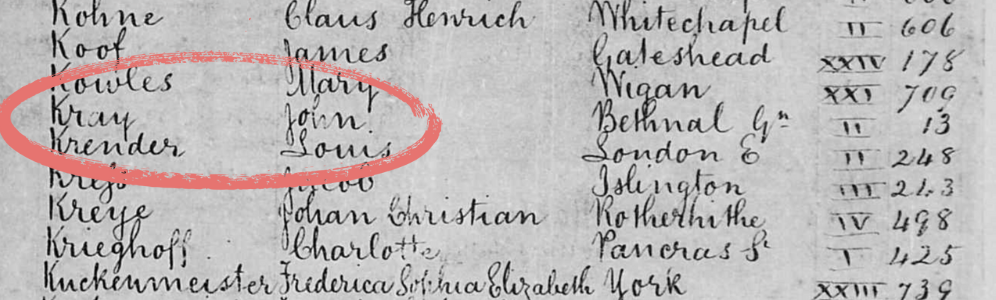 Kohne Claus Henrich Whitechapel II 606
Koof James Gateshead XXIV 178
Kowles Mary Wigan XXI 709
Kray John. Bethnal Gn II 13
Krender Louis London E II 248
Kreß Jacob Islington III 213
Kreye Johan Christian Rotherhithe IV 498
Krieghoff Charlotte Pancras St I 425
Kuckenmeister Frederica Sophia Elizabeth York XXIII 739